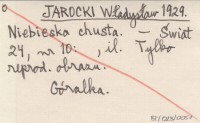 JAROCKI Władysław 1929.
Niebieska chusta. — Świat
24, nr 10: , il. Tylko
reprod. obrazu.
Góralka.